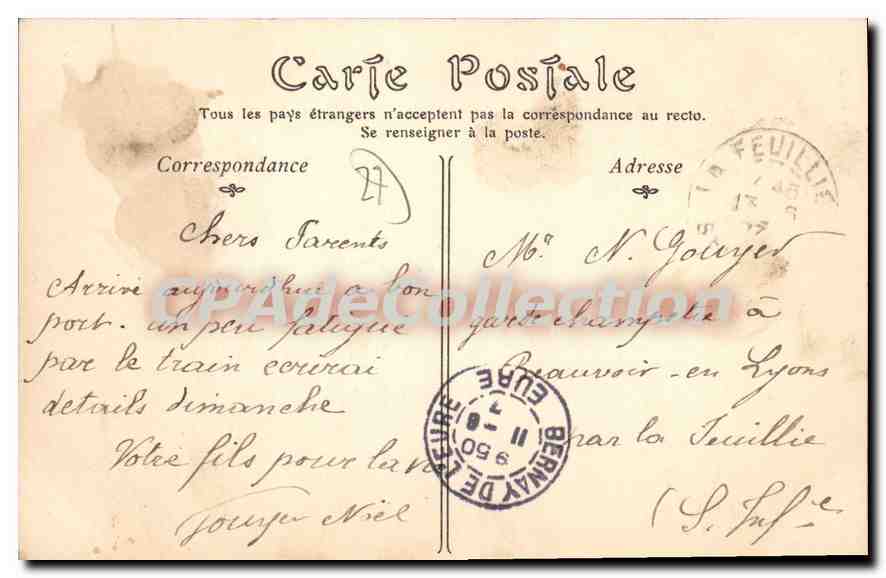 Carte Postale
Tous les pays étrangers n'acceptent pas la correspondance au recto.
Se renseigner à la poste.
Correspondance
Adresse
27
LA FEUILLIE
Chers Parents
Arrivé aujourd'hui a bon
port. un peu fatigué
par le train ecrirai
details dimanche
Votre fils pour la vi
Gouyer Niel
Mr. N. Gouyer
garde champetre à
Beauvoir-en Lyons
par la Feuillie
(S. Infre
BERNAY DE L'EURE
EURE
9 50
11 - 8
CPAdeCollection